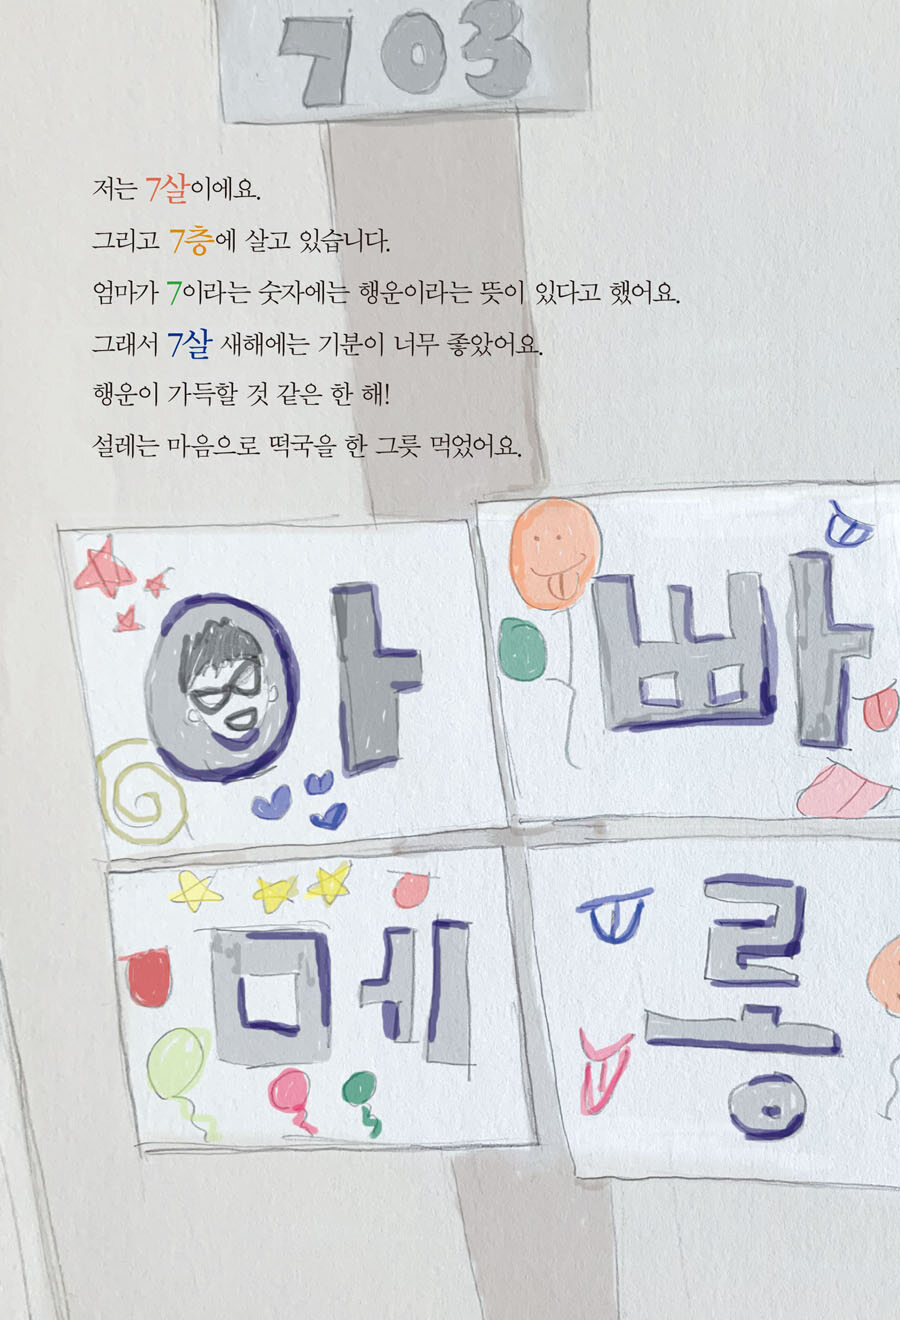 703
저는 7살이에요.
그리고 7층에 살고 있습니다.
엄마가 7이라는 숫자에는 행운이라는 뜻이 있다고 했어요.
그래서 7살 새해에는 기분이 너무 좋았어요.
행운이 가득할 것 같은 한 해!
설레는 마음으로 떡국을 한 그릇 먹었어요.
아빠
메롱